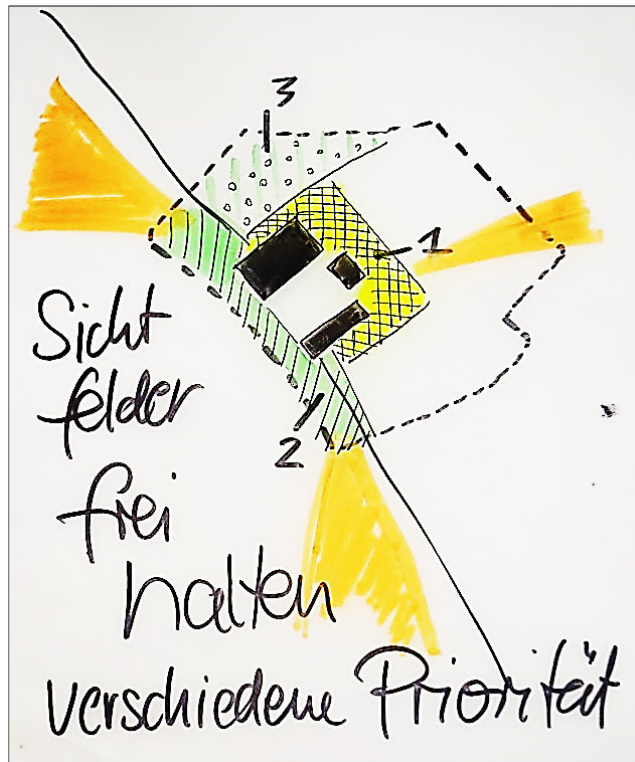 3
1
2
Sicht
felder
frei
halten
verschiedene Priorität